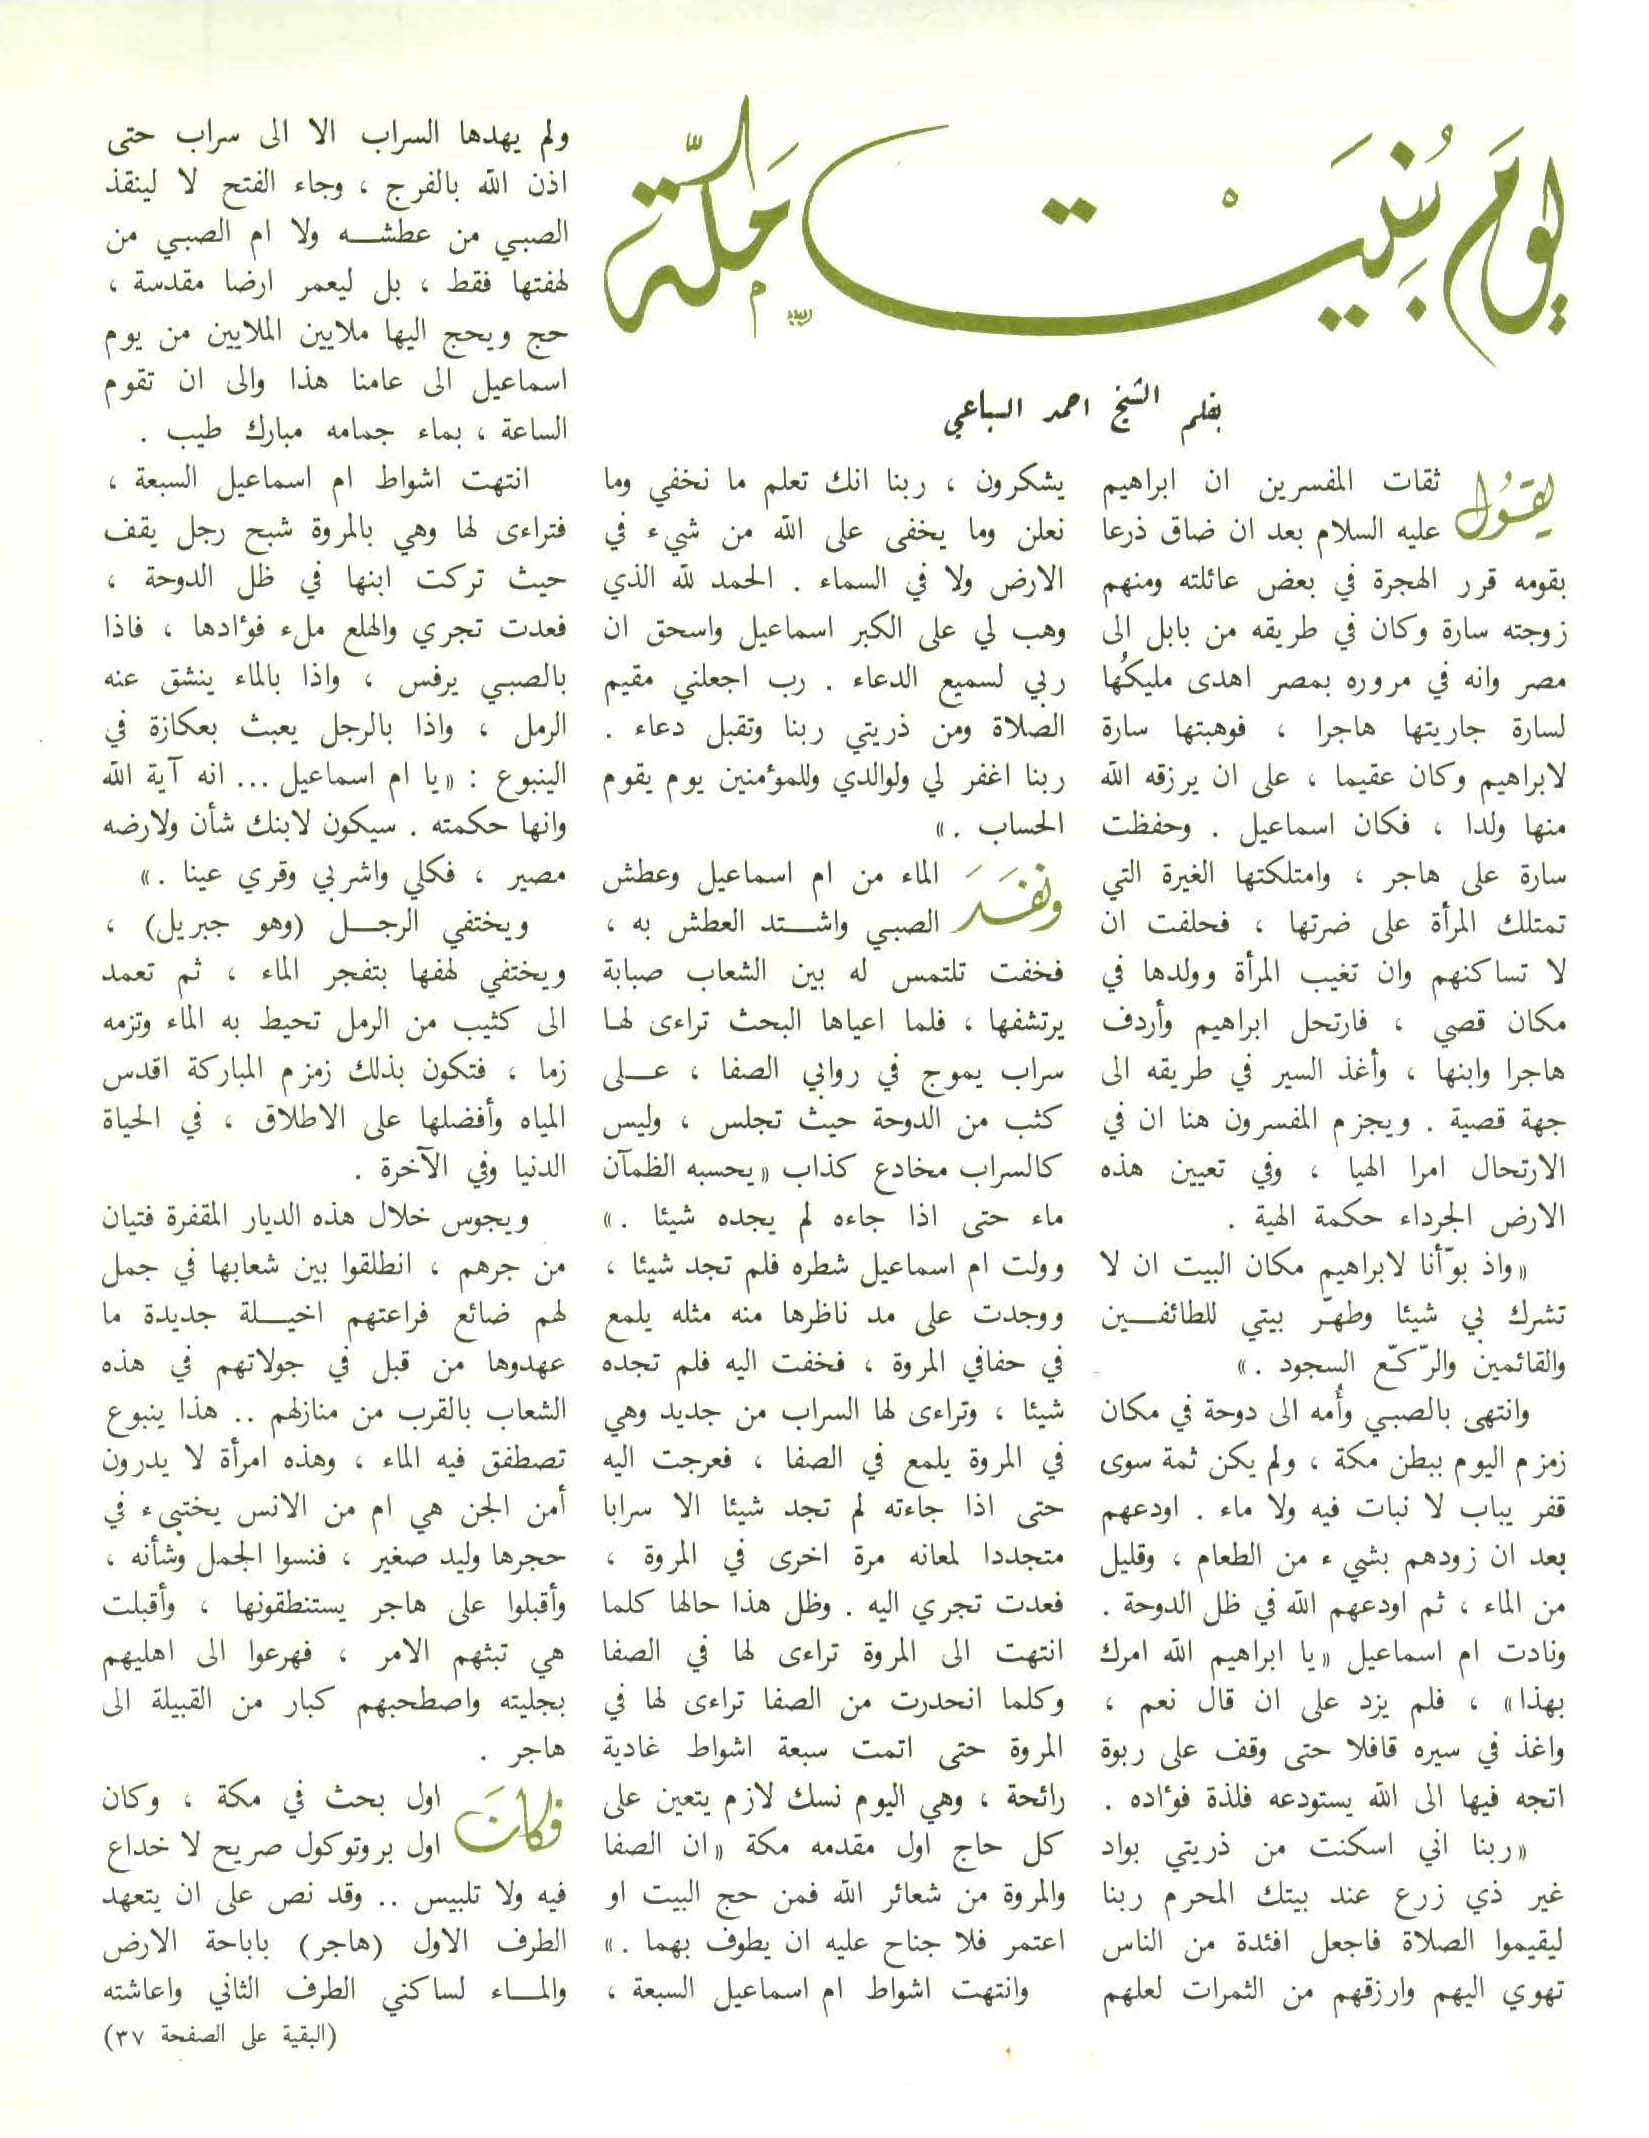 يَومَ بُنِيَتْ مَكّة
بقلم الشيخ احمد السباعي
يقُول ثقات المفسرين ان ابراهيم
عليه السلام بعد ان ضاق ذرعا
بقومه قرر الهجرة في بعض عائلته ومنهم
زوجته سارة وكان في طريقه من بابل الى
مصر وانه في مروره بمصر اهدى مليكُها
لسارة جاريتها هاجرا ، فوهبتها سارة
لابراهيم وكان عقيما ، على ان يرزقه الله
منها ولدا ، فكان اسماعيل . وحفظت
سارة على هاجر ، وامتلكتها الغيرة التي
تمتلك المرأة على ضرتها ، فحلفت ان
لا تساكنهم وان تغيب المرأة وولدها في
مكان قصي ، فارتحل ابراهيم وأردف
هاجرا وابنها ، وأغذ السير في طريقه الى
جهة قصية . ويجزم المفسرون هنا ان في
الارتحال امرا الهيا ، وفي تعيين هذه
الارض الجرداء حكمة الهية .
«واذ بوّأنا لابراهيم مكان البيت ان لا
تشرك بي شيئا وطهّر بيتي للطائفين
والقائمين والرّكّع السجود .»
وانتهى بالصبي وأُمه الى دوحة في مكان
زمزم اليوم ببطن مكة ، ولم يكن ثمة سوى
قفر يباب لا نبات فيه ولا ماء . اودعهم
بعد ان زودهم بشيء من الطعام ، وقليل
من الماء ، ثم اودعهم الله في ظل الدوحة .
ونادت ام اسماعيل «يا ابراهيم الله امرك
بهذا» ، فلم يزد على ان قال نعم ،
واغذ في سيره قافلا حتى وقف على ربوة
اتجه فيها الى الله يستودعه فلذة فؤاده .
«ربنا اني اسكنت من ذريتي بواد
غير ذي زرع عند بيتك المحرم ربنا
ليقيموا الصلاة فاجعل افئدة من الناس
تهوي اليهم وارزقهم من الثمرات لعلهم
يشكرون ، ربنا انك تعلم ما نخفي وما
نعلن وما يخفى على الله من شيء في
الارض ولا في السماء . الحمد لله الذي
وهب لي على الكبر اسماعيل واسحق ان
ربي لسميع الدعاء . رب اجعلني مقيم
الصلاة ومن ذريتي ربنا وتقبل دعاء .
ربنا اغفر لي ولوالدي وللمؤمنين يوم يقوم
الحساب .»
ونفَدَ الماء من ام اسماعيل وعطش
الصبي واشتد العطش به ،
فخفت تلتمس له بين الشعاب صبابة
يرتشفها ، فلما اعياها البحث تراءى لها
سراب يموج في روابي الصفا ، على
كثب من الدوحة حيث تجلس ، وليس
كالسراب مخادع كذاب «يحسبه الظمآن
ماء حتى اذا جاءه لم يجده شيئا .»
وولت ام اسماعيل شطره فلم تجد شيئا ،
ووجدت على مد ناظرها منه مثله يلمع
في حفافي المروة ، فخفت اليه فلم تجده
شيئا ، وتراءى لها السراب من جديد وهي
في المروة يلمع في الصفا ، فعرجت اليه
حتى اذا جاءته لم تجد شيئا الا سرابا
متجددا لمعانه مرة اخرى في المروة ،
فعدت تجري اليه . وظل هذا حالها كلما
انتهت الى المروة تراءى لها في الصفا
وكلما انحدرت من الصفا تراءى لها في
المروة حتى اتمت سبعة اشواط غادية
رائحة ، وهي اليوم نسك لازم يتعين على
كل حاج اول مقدمه مكة «ان الصفا
والمروة من شعائر الله فمن حج البيت او
اعتمر فلا جناح عليه ان يطوف بهما .»
وانتهت اشواط ام اسماعيل السبعة ،
ولم يهدها السراب الا الى سراب حتى
اذن الله بالفرج ، وجاء الفتح لا لينقذ
الصبي من عطشه ولا ام الصبي من
لهفتها فقط ، بل ليعمر ارضا مقدسة ،
حج ويحج اليها ملايين الملايين من يوم
اسماعيل الى عامنا هذا والى ان تقوم
الساعة ، بماء جمامه مبارك طيب .
انتهت اشواط ام اسماعيل السبعة ،
فتراءى لها وهي بالمروة شبح رجل يقف
حيث تركت ابنها في ظل الدوحة ،
فعدت تجري والهلع ملء فؤادها ، فاذا
بالصبي يرفس ، واذا بالماء ينشق عنه
الرمل ، واذا بالرجل يعبث بعكازة في
الينبوع : «يا ام اسماعيل ... انه آية الله
وانها حكمته . سيكون لابنك شأن ولارضه
مصير ، فكلي واشربي وقري عينا .»
ويختفي الرجل (وهو جبريل) ،
ويختفي لهفها بتفجر الماء ، ثم تعمد
الى كثيب من الرمل تحيط به الماء وتزمه
زما ، فتكون بذلك زمزم المباركة اقدس
المياه وأفضلها على الاطلاق ، في الحياة
الدنيا وفي الآخرة .
ويجوس خلال هذه الديار المقفرة فتيان
من جرهم ، انطلقوا بين شعابها في جمل
لهم ضائع فراعتهم اخيلة جديدة ما
عهدوها من قبل في جولاتهم في هذه
الشعاب بالقرب من منازلهم .. هذا ينبوع
تصطفق فيه الماء ، وهذه امرأة لا يدرون
أمن الجن هي ام من الانس يختبىء في
حجرها وليد صغير ، فنسوا الجمل وشأنه ،
وأقبلوا على هاجر يستنطقونها ، وأقبلت
هي تبثهم الامر ، فهرعوا الى اهليهم
بجليته واصطحبهم كبار من القبيلة الى
هاجر .
فكانَ اول بحث في مكة ، وكان
اول بروتوكول صريح لا خداع
فيه ولا تلبيس .. وقد نص على ان يتعهد
الطرف الاول (هاجر) باباحة الارض
والماء لساكني الطرف الثاني واعاشته
(البقية على الصفحة ٣٧)